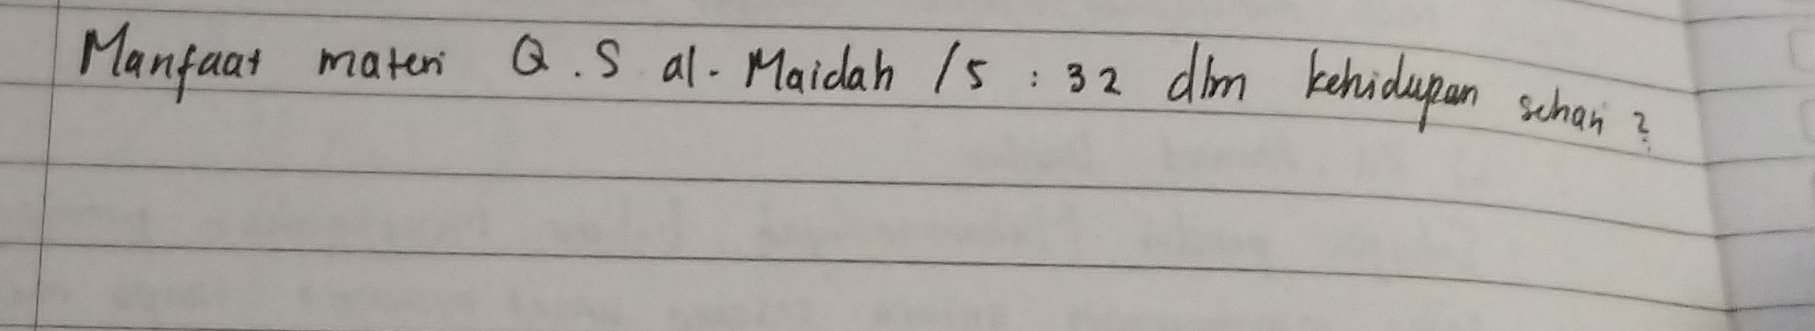 Manfaat materi Q.S al-Maidah /5 : 32 dlm kehidupan sehari ?